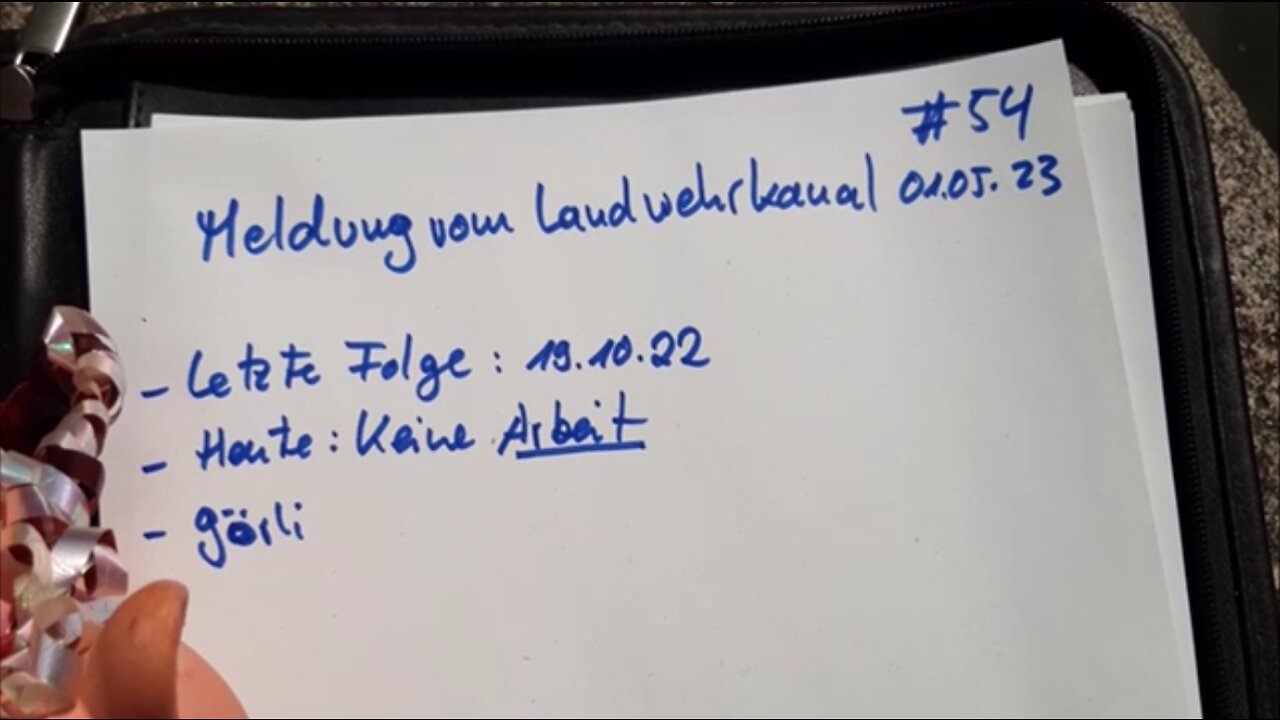 #54
Meldung vom Landwehrkanal 01.05.23
- Letzte Folge: 19.10.22
- Heute: Keine Arbeit
- Görli